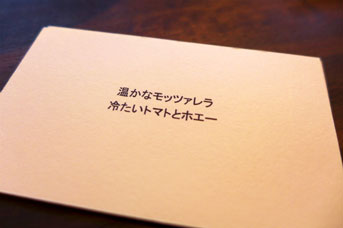 温かなモッツァレラ
冷たいトマトとホエー